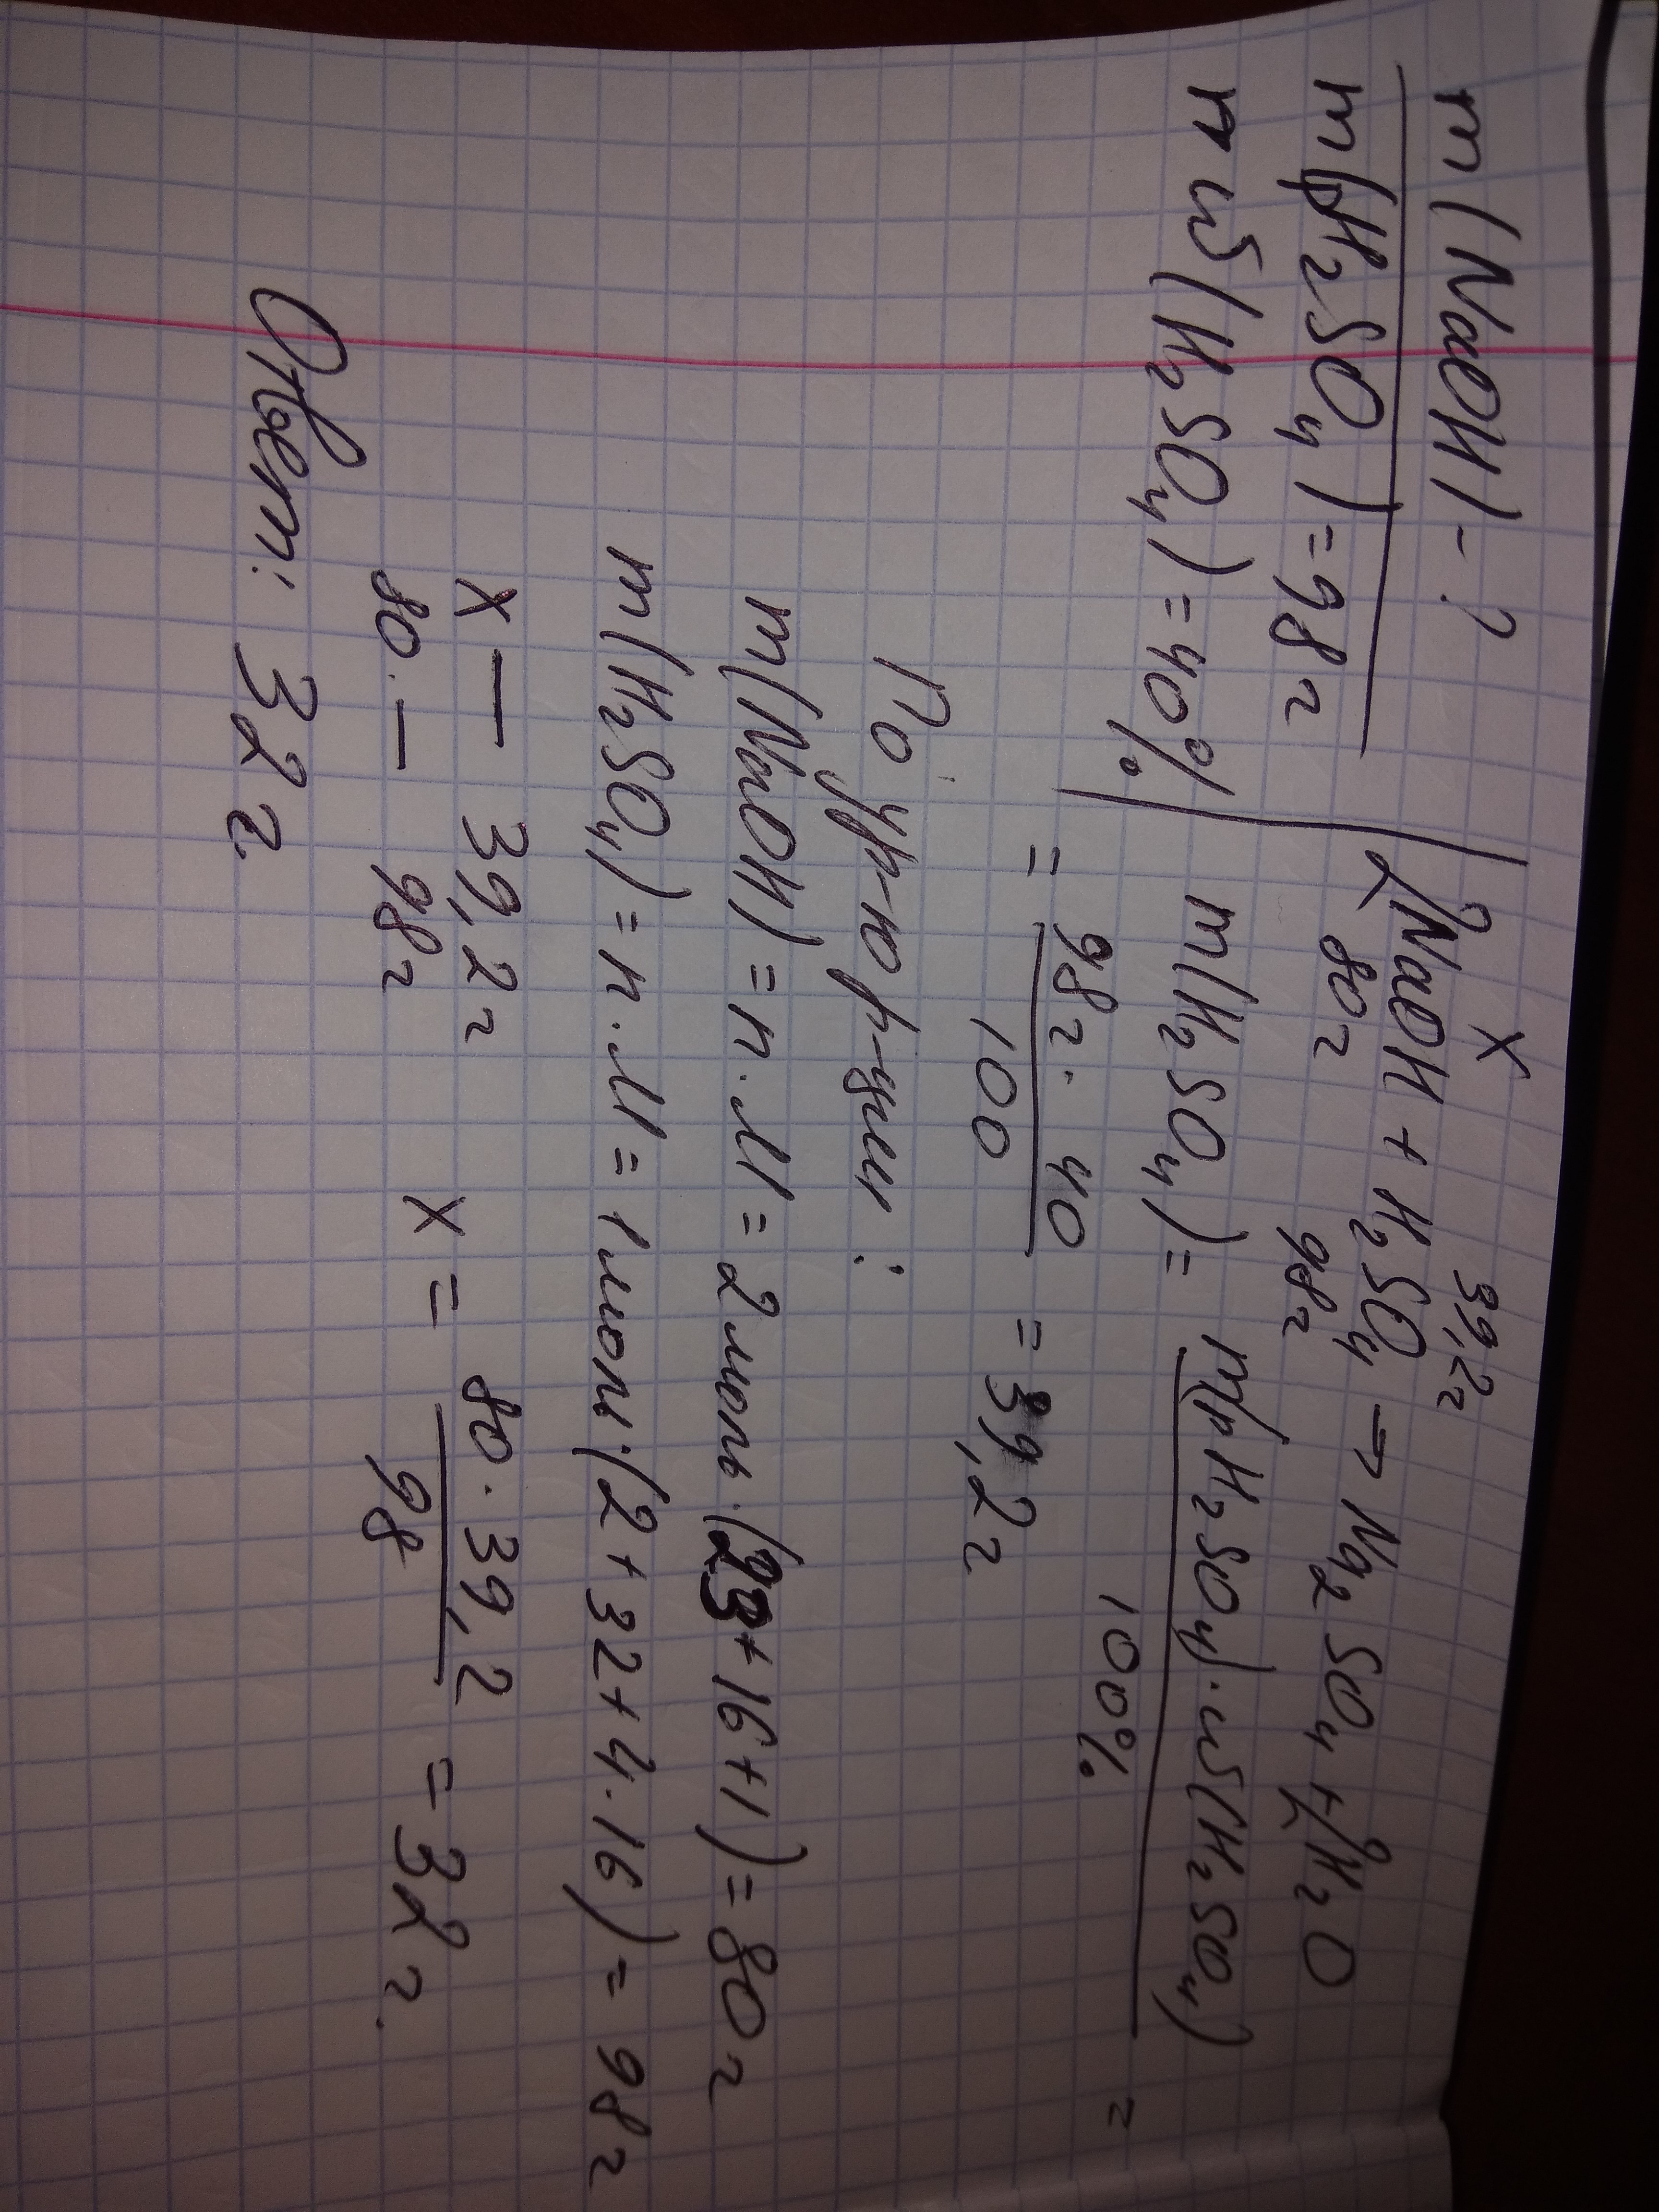 m(NaOH) - ?
m(рH₂SO₄) = 98 г
ω(H₂SO₄) = 40%
x 39,2 г
2NaOH + H₂SO₄ → Na₂SO₄ + 2H₂O
80 г 98 г
m(H₂SO₄) = m(рH₂SO₄) · ω(H₂SO₄) / 100% =
= 98 г · 40 / 100 = 39,2 г
По ур-ю р-ции :
m(NaOH) = n · M = 2 моль · (23 + 16 + 1) = 80 г
m(H₂SO₄) = n · M = 1 моль · (2 + 32 + 4 · 16) = 98 г
x — 39,2 г
80 — 98 г
x = 80 · 39,2 / 98 = 32 г.
Ответ: 32 г.